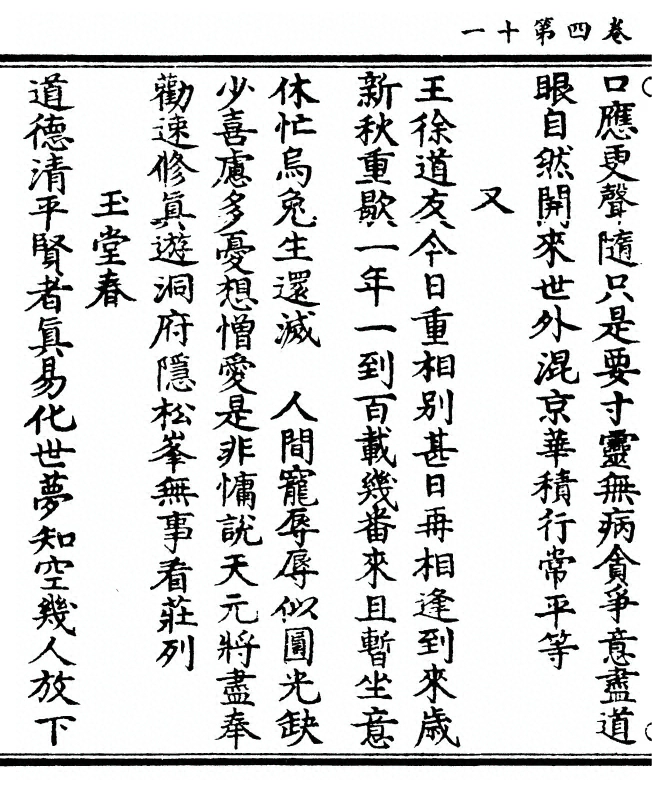 卷四第十一
口應更聲隨只是要寸靈無病貪爭意盡道
眼自然開來世外混京華積行常平等
又
王徐道友今日重相別甚日再相逢到來歲
新秋重歇一年一到百載幾番來且暫坐意
休忙烏兔生還滅　人間寵辱辱似圓光缺
少喜慮多憂想憎愛是非慵說天元將盡奉
勸速修眞遊洞府隱松峯無事看莊列
玉堂春
道德清平賢者眞易化世夢知空幾人放下